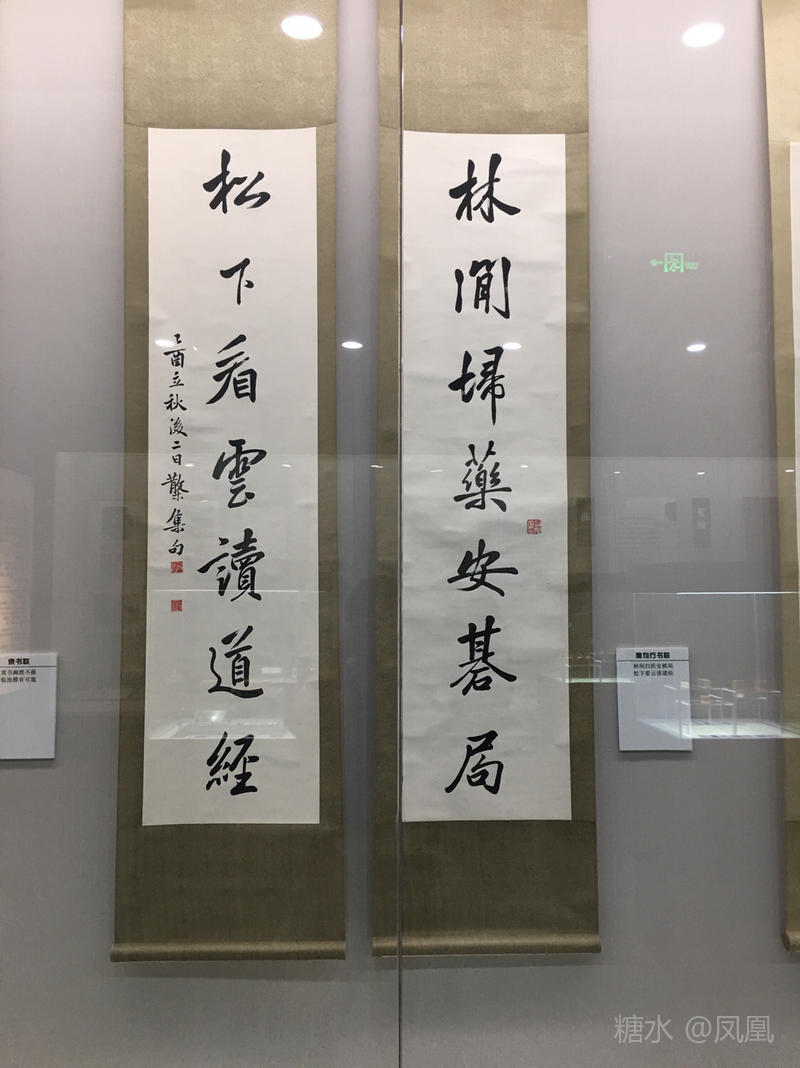 林間埽藥安碁局
松下看雲讀道經
乙酉立秋後二日檠集句
隶书联
集句行书联
林间扫药安棋局
松下看云读道经
糖水 @凤凰